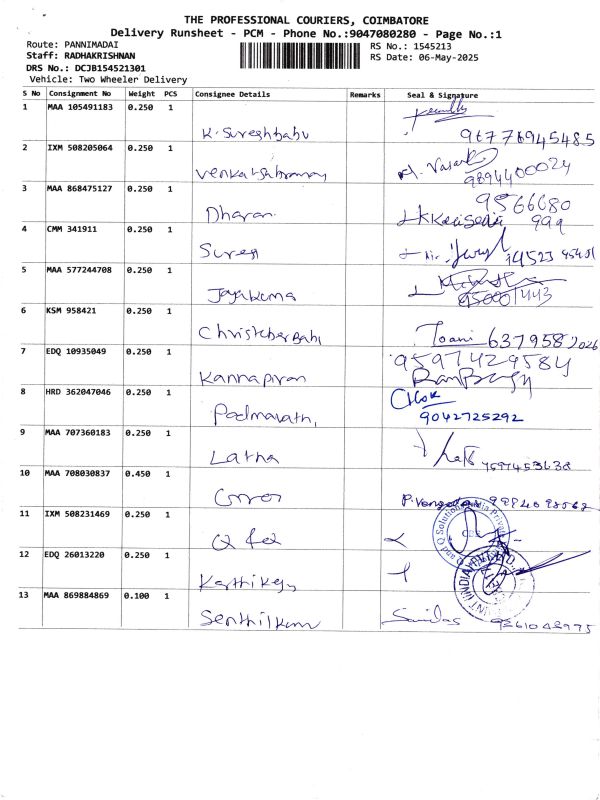 THE PROFESSIONAL COURIERS, COIMBATORE
Delivery Runsheet - PCM - Phone No.:9047080280 - Page No.:1
Route: PANNIMADAI
Staff: RADHAKRISHNAN
DRS No.: DCJB154521301
Vehicle: Two Wheeler Delivery
RS No.: 1545213
RS Date: 06-May-2025
S No Consignment No Weight PCS Consignee Details Remarks Seal & Signature
1 MAA 105491183 0.250 1 K. Sureshbabu
2 IXM 508205064 0.250 1 9894400024
3 MAA 868475127 0.250 1 Dharan 9566680
999
4 CMM 341911 0.250 1 Suresh
5 MAA 577244708 0.250 1 Jayakuma
6 KSM 958421 0.250 1 6379582026
7 EDQ 10935049 0.250 1 Kannapiran 9597429584
8 HRD 362047046 0.250 1 Padmavathi
9042725292
9 MAA 707360183 0.250 1 Latha
10 MAA 708030837 0.450 1
11 IXM 508231469 0.250 1
12 EDQ 26013220 0.250 1
13 MAA 869884869 0.100 1 Senthilkum